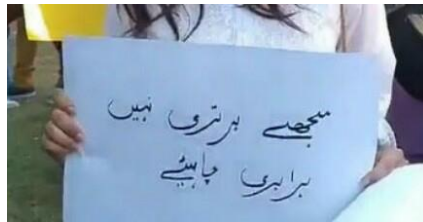 مجھے برتری نہیں
برابری چاہیئے